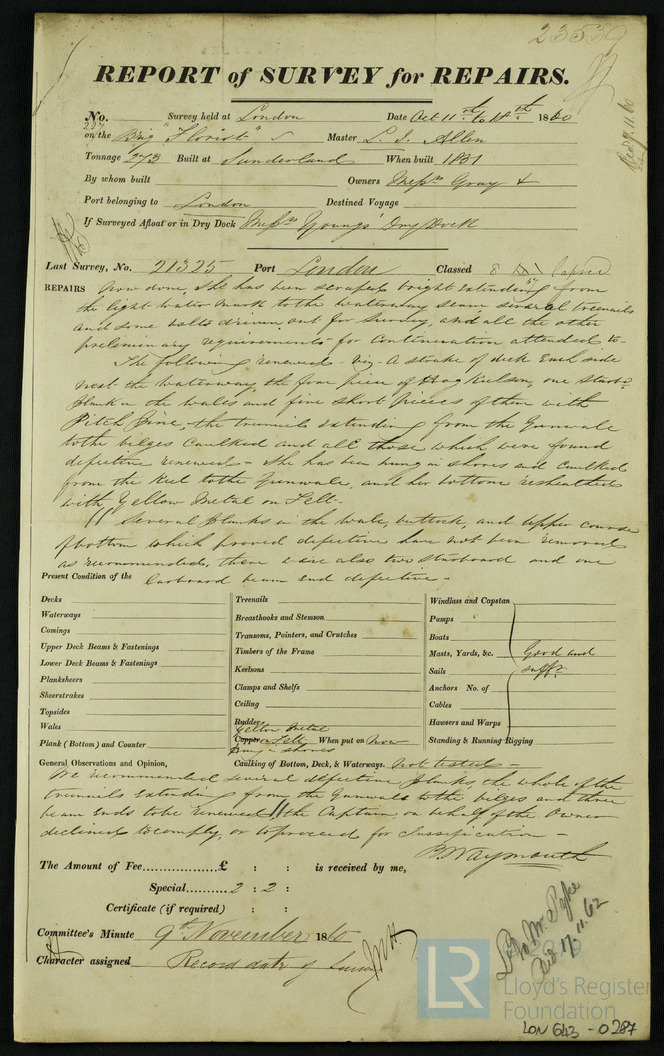 23539
REPORT of SURVEY for REPAIRS.
No. 227 Survey held at London Date Oct 11th to 18th 1860
on the Brig "Florist" Master L. J. Allen
Tonnage 273 Built at Sunderland When built 1837
By whom built Owners Messrs Gray &
Port belonging to London Destined Voyage
If Surveyed Afloat or in Dry Dock Messrs Youngs' Dry Dock
Last Survey, No. 21325 Port London Classed 8 lapsed
REPAIRS Now done, She has been scraped bright extending from
the light water mark to the waterway seam, several treenails
and some bolts driven out for survey, and all the other
preliminary requirements for Continuation attended to -
The following renewed - viz - A strake of deck Each side
next the waterway, the fore piece of Hog Keelson, one
plank in the wales and five short pieces of them with
Pitch Pine the treenails extending from the Gunwale
to the bilges Caulked and all those which were found
defective renewed - She has been hung in shores and Caulked
from the Keel to the Gunwale, and her bottom resheathed
with Yellow Metal on Felt -
Several planks in the wale, buttock, and upper course
of bottom which proved defective have not been removed
as recommended, there were also two starboard and one
Present Condition of the larboard beam End defective -
Decks
Waterways
Comings
Upper Deck Beams & Fastenings
Lower Deck Beams & Fastenings
Planksheers
Sheerstrakes
Topsides
Wales
Plank (Bottom) and Counter
Treenails
Breasthooks and Stemson
Transoms, Pointers, and Crutches
Timbers of the Frame
Keelsons
Clamps and Shelfs
Ceiling
Rudder
Yellow Metal
Copper on Felt When put on Now
Hung in shores
Windlass and Capstan
Pumps
Boats
Masts, Yards, &c. Good and
Sails sufft
Anchors No. of
Cables
Hawsers and Warps
Standing & Running Rigging
General Observations and Opinion, Caulking of Bottom, Deck, & Waterways. Not tested -
We recommended several defective planks, the whole of the
treenails extending from the Gunwale to the bilges and three
beam Ends to be renewed // the Captain, on behalf of the Owner
declined to comply, or to proceed for
B. Waymouth
The Amount of Fee..................£ : : is received by me,
Special.......... 2 : 2 :
Certificate (if required) : :
Committee's Minute 9th November 1860
Character assigned Record date of Survey
MH
To Mr. Pyke
17.11.62
LR
Lloyd's Register
Foundation
LON 643 - 0287